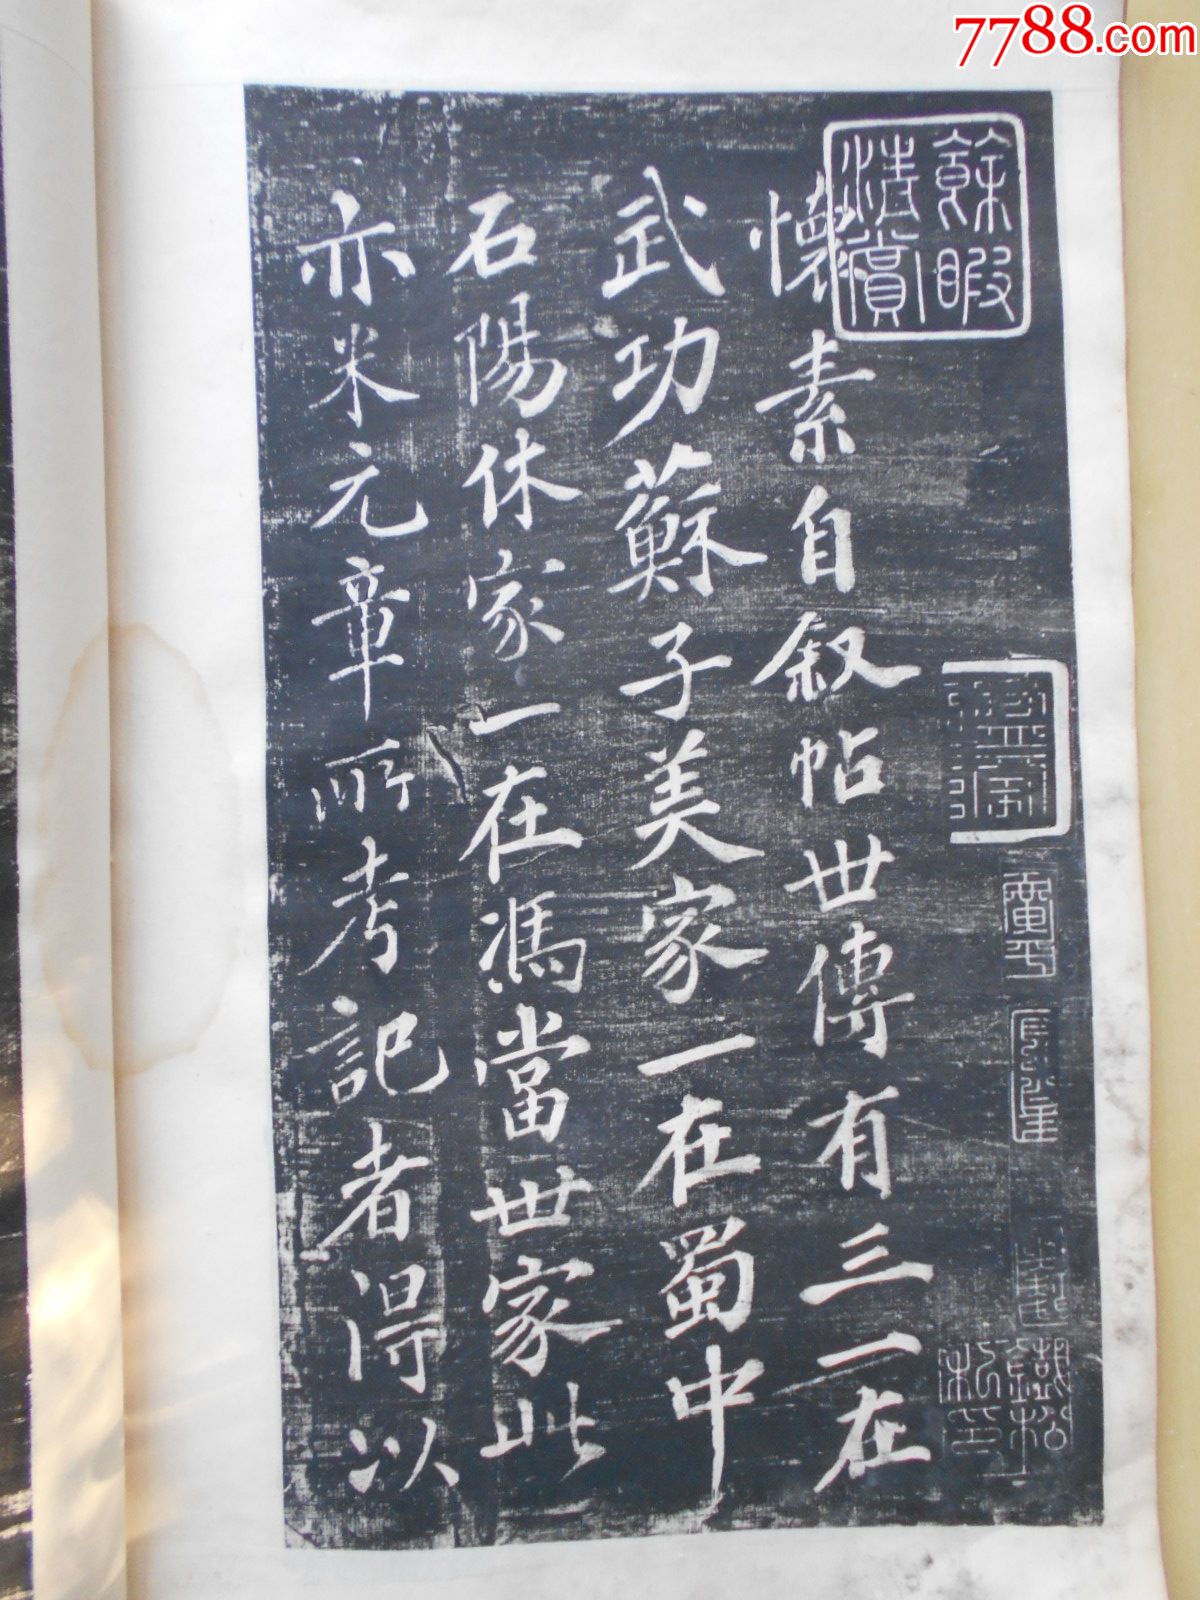 7788.com
餘暇
清賞
懷素自叙帖世傳有三一在
武功蘇子美家一在蜀中
石陽休家一在馮當世家此
亦米元章所考記者得以